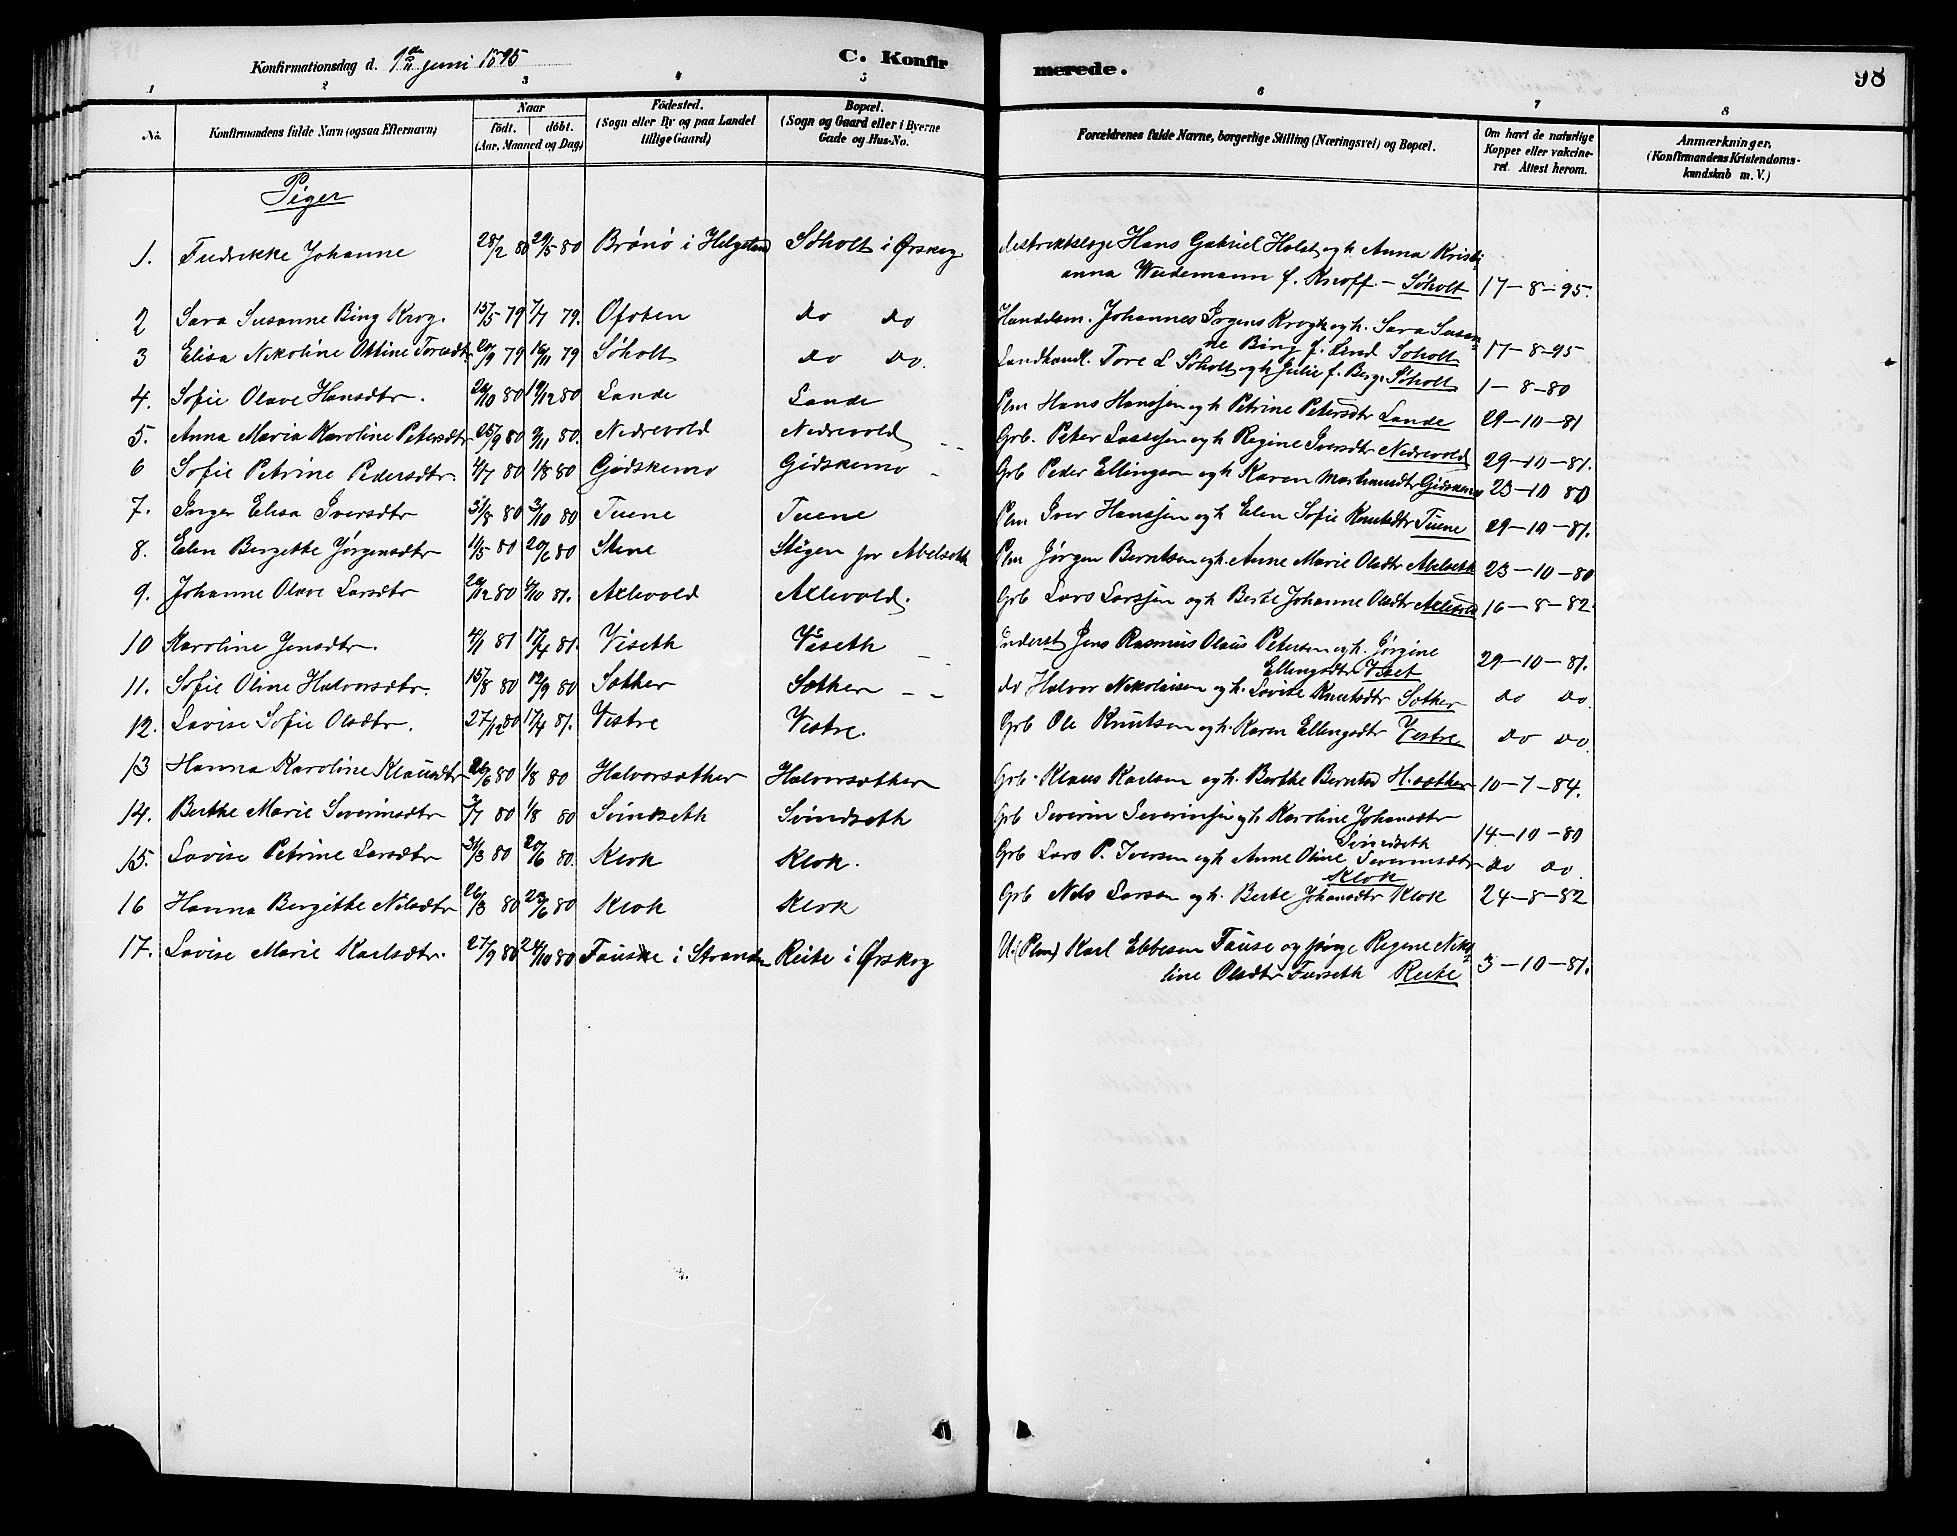 Konfirmationsdag d. 9de juni 1895
C. Konfirmerede.
98
1 2 3 4 5 6 7 8
No.
Konfirmandens fulde Navn (ogsaa Efternavn)
Naar
födt. döbt.
(Aar, Maaned og Dag)
Födested.
(Sogn eller By og paa Landet
tillige Gaard)
Bopæl.
(Sogn og Gaard eller i Byerne
Gade og Hus-No.
Forældrenes fulde Navne, borgerlige Stilling (Næringsvei) og Bopæl.
Om havt de naturlige
Kopper eller vakcine-
ret. Attest herom.
Anmærkninger,
(Konfirmandens Kristendoms-
kundskab m. V.)
Piger
1. Fredrikke Johanne 28/2 80 29/5 80 Brönö i Helgeland Söholt i Ørskog distriktslæge Hans Gabriel Holst og h. Anna Kristi-
anna Wiedemann f. Knoff - Söholt 17-8-95.
2 Sara Susanne Bing Krog. 15/5 79 7/7 79. Ofoten do do Handelsm. Johannes Irgens Krogh og h. Sara Susan-
ne Bing f. Lind Söholt 17-8-95
3 Elisa Nikoline Ottine Toresdtr. 20/9 79 16/11 79 Söholt do do. Landhandl. Tore L Söholt og h Julie f. Berg. Söholt 1-8-80
4. Sofie Olave Hansdtr. 20/10 80 19/12 80 Lande Lande Plm Hans Hanssen og h Petrine Petersdtr Lande 29-10-81
5. Anna Maria Karoline Petersdtr 25/9 80 9/11 80. Nedrevold Nedrevold Grb. Peter Lassesen og h Regine Iversdtr Nedrevold 29-10-81.
6 Sofie Petrine Pedersdtr. 4/7 80 1/8 80 Gjdskemo Gidskemo Grb Peder Ellingsen og h Karen Gidskemo 23-10 80
7. Inger Elisa Iversdtr 31/8 80 3/10 80 Tuene Tuene Plm Iver Hanssen og h Elen Sofie Knutsdtr Tuene 29-10-81.
8. Elen Bergette Jørgensdtr 11/5 80 20/6 80 Stene Stigen pr Abelseth Plm Jørgen Berntsen og h. Anne Marie Olsdtr Abelseth 23-10-80
9. Johanne Olave Larsdtr 29/12 80 81. Axlevold Axlevold. Grb Lars Larssen og h Berte Johanne Olsdtr Axlevold 16-8-82.
10 Karoline Jensdtr. 4/1 81 17/4 81. Viseth Viseth Inderst Jens Rasmus Olaus Petersen og h. Jørgine
Ellingsdtr Viset 29-10-81.
11. Sofie Oline Halvorsdtr. 15/8 80 19/9 80 Sæther Sæther - - do Halvor Nikolaisen og h. Lovise Knutsdtr Sæther do do.
12. Lovise Sofie Olsdtr. 27/12 80 17/4 81. Vestre Vestre. Grb Ole Knutsen og h. Karen Ellingsdtr Vestre do do.
13 Hanna Karoline Klausdtr 26/6 80 1/8 80 Halvorsæther Halvorsæther Grb. Klaus Karlsen og h. Berthe Berntsd H.sæther 10-7-84.
14. Berthe Marie Severinsdtr 3/7 80 1/8 80 Svindseth Svindseth Grb Severin Severinsen og h Karoline Johansdtr
Svindseth 14-10-80
15. Lovise Petrine Larsdtr 31/3 80 20/6 80. Klok Klok. Grb Lars P. Iversen og h Anne Oline Severinsdtr
Klok do do.
16 Hanna Bergitte Nilsdtr 26/3 80 20/6 80 Klok Klok Grb Nils Larsen og h. Berte Johansdtr Klok 24-8-82
17. Lovise Marie Karlsdtr. 27/9 80 24/10 80 Fauske i Stranden Reite i Ørskog U. (Plm) Karl Ebbesen Fause og pige Regine Niko-
line Olsdtr Furseth Reite 3-10-81.